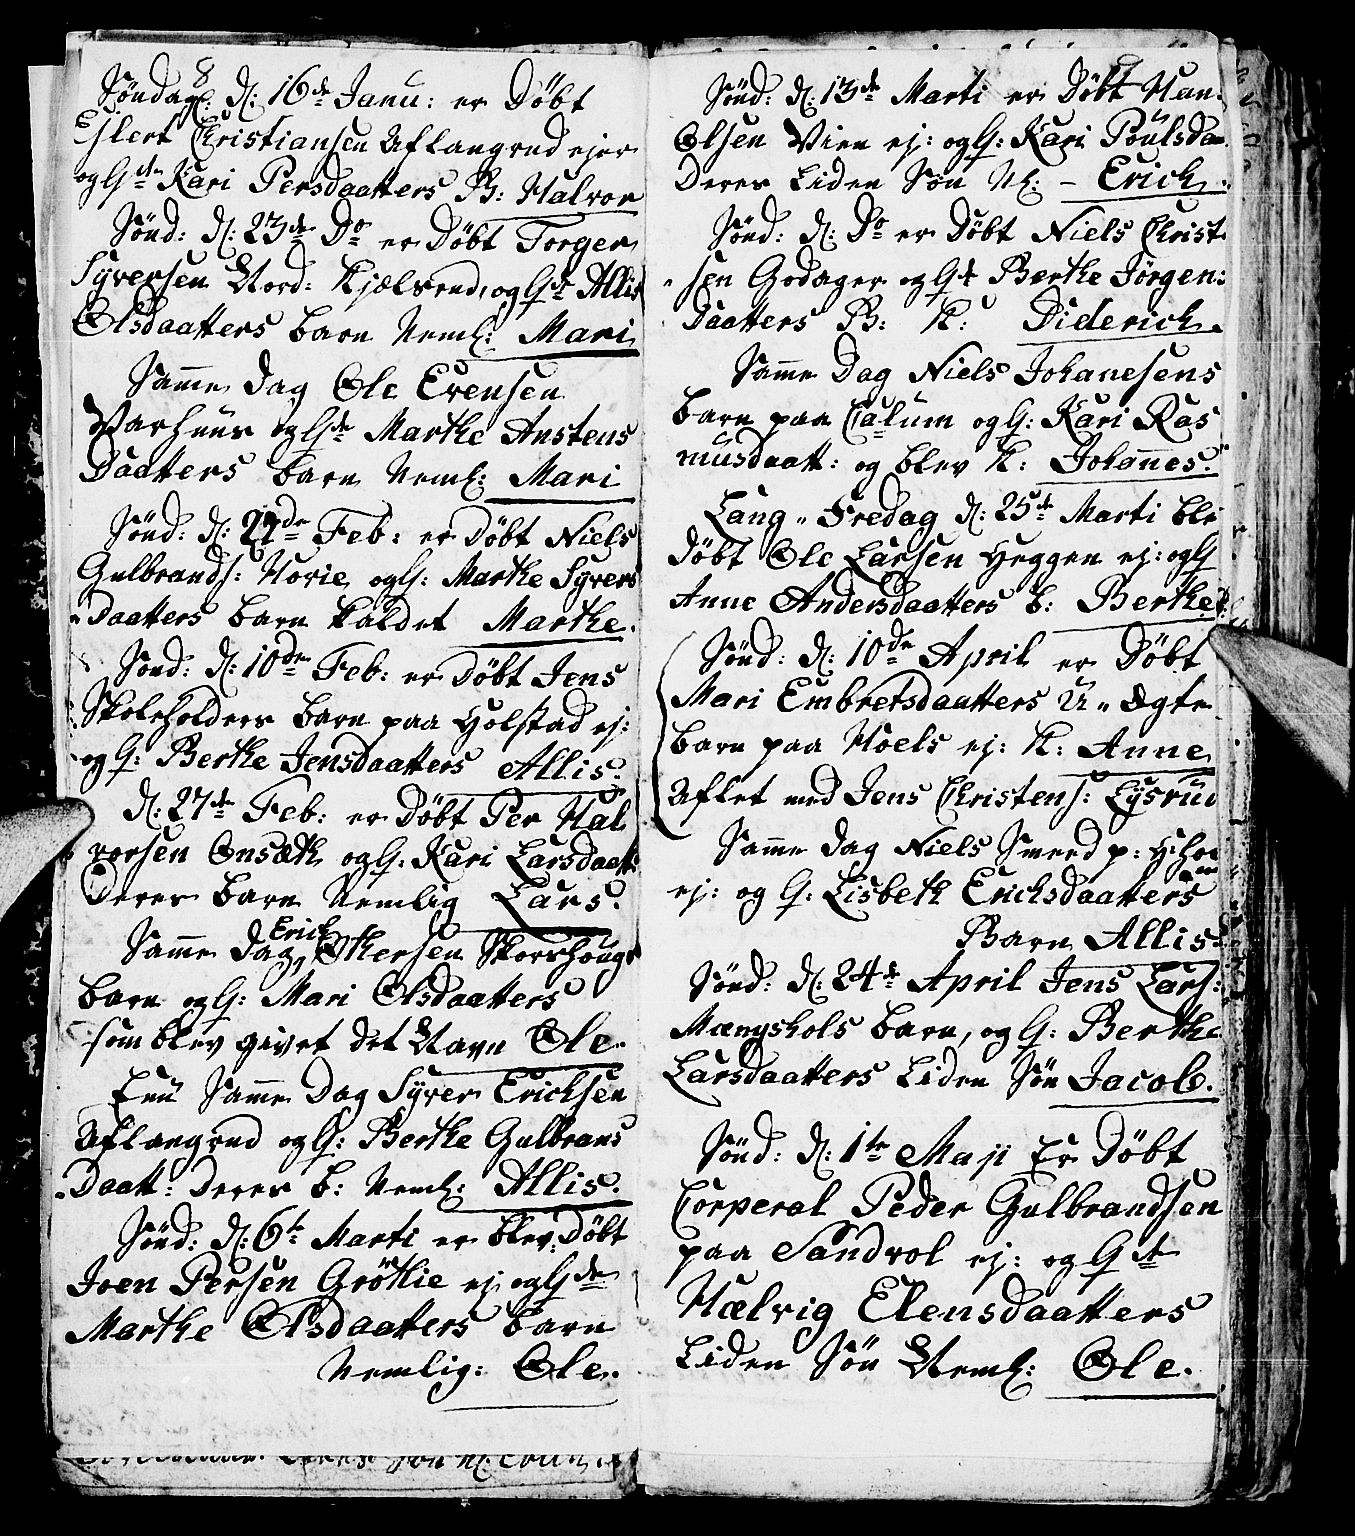 8
Søndag: D: 16de Janu: er Døbt
Ejlert Christiansen Aflangrud ejer
og Gde Kari Persdaatters B: Halvor
Sönd: D: 23de Do er Døbt Torger
Syversen Nord: Kjælsrud, og Gde Allis
Olsdaatters barn Neml: Mari
Samme Dag Ole Evensen
Varhuus og Gde Marthe Anstens
Daatters barn Neml: Mari
Sönd: D: Feb: er Døbt Niels
Gulbrands: Horie og G: Marthe Syvers
Daatters barn kaldet Marthe.
Sönd: D: 10de Feb: er Døbt Jens
Skoleholders barn paa Holstad ej:
og G: Berthe Jensdaatters Allis.
D: 27de Feb: er Døbt Per Hal
vorsen Onsæth og G: Kari Larsdaatt
Deres barn Nemlig Lars.
Samme Dag Erich Othersen Skorshougs
barn og G: Mari Olsdaatters
som blev givet det Navn Ole.
Enu Samme Dag Syver Erichsen
Aflangrud og G: Berthe Gulbrans
Daatt: Deres b: Neml: Allis.
Sönd: D: 6te Marti er blev Døbt
Joen Persen Gröthie ej og Gde
Marthe Olsdaatters barn
Nemlig: Ole.
Sönd: D: 13de Marti er Døbt Han
Olsen Vien ej: og G: Kari Poulsda
Deres Liden Søn N: - Erich.
Sönd: D: Do er Døbt Niels Christ
sen Godager og Gde Berthe Jörgen:
Daatters B: K: Diderich.
Samme Dag Niels Johanesens
barn paa Calum og G: Kari Ras
musdaatt: og blev K: Johannes.
Lang-Fredag D: 25de Marti ble
Døbt Ole Larsen Heggen ej: og G
Anne Andersdaatters b: Berthe
Sönd: D: 10de April er Døbt
Mari Embretsdaatters U-Ægte
barn paa Hoels ej: K: Anne
Aflet med Jens Christens: Lysrud
Samme Dag Niels Smed p:
ej: og G: Lisbeth Erichsdaatters
Barn Allis
Sönd: D: 24de April Jens Lars:
Mængshols barn, og G: Berthe
Larsdaatters Liden Søn Jacob.
Sönd: D: 1te Maji Er Døbt
Corperal Peder Gulbrandsen
paa Sandvol ej: og Gde
Hælvig Elensdaatters
Liden Søn Neml: Ole.